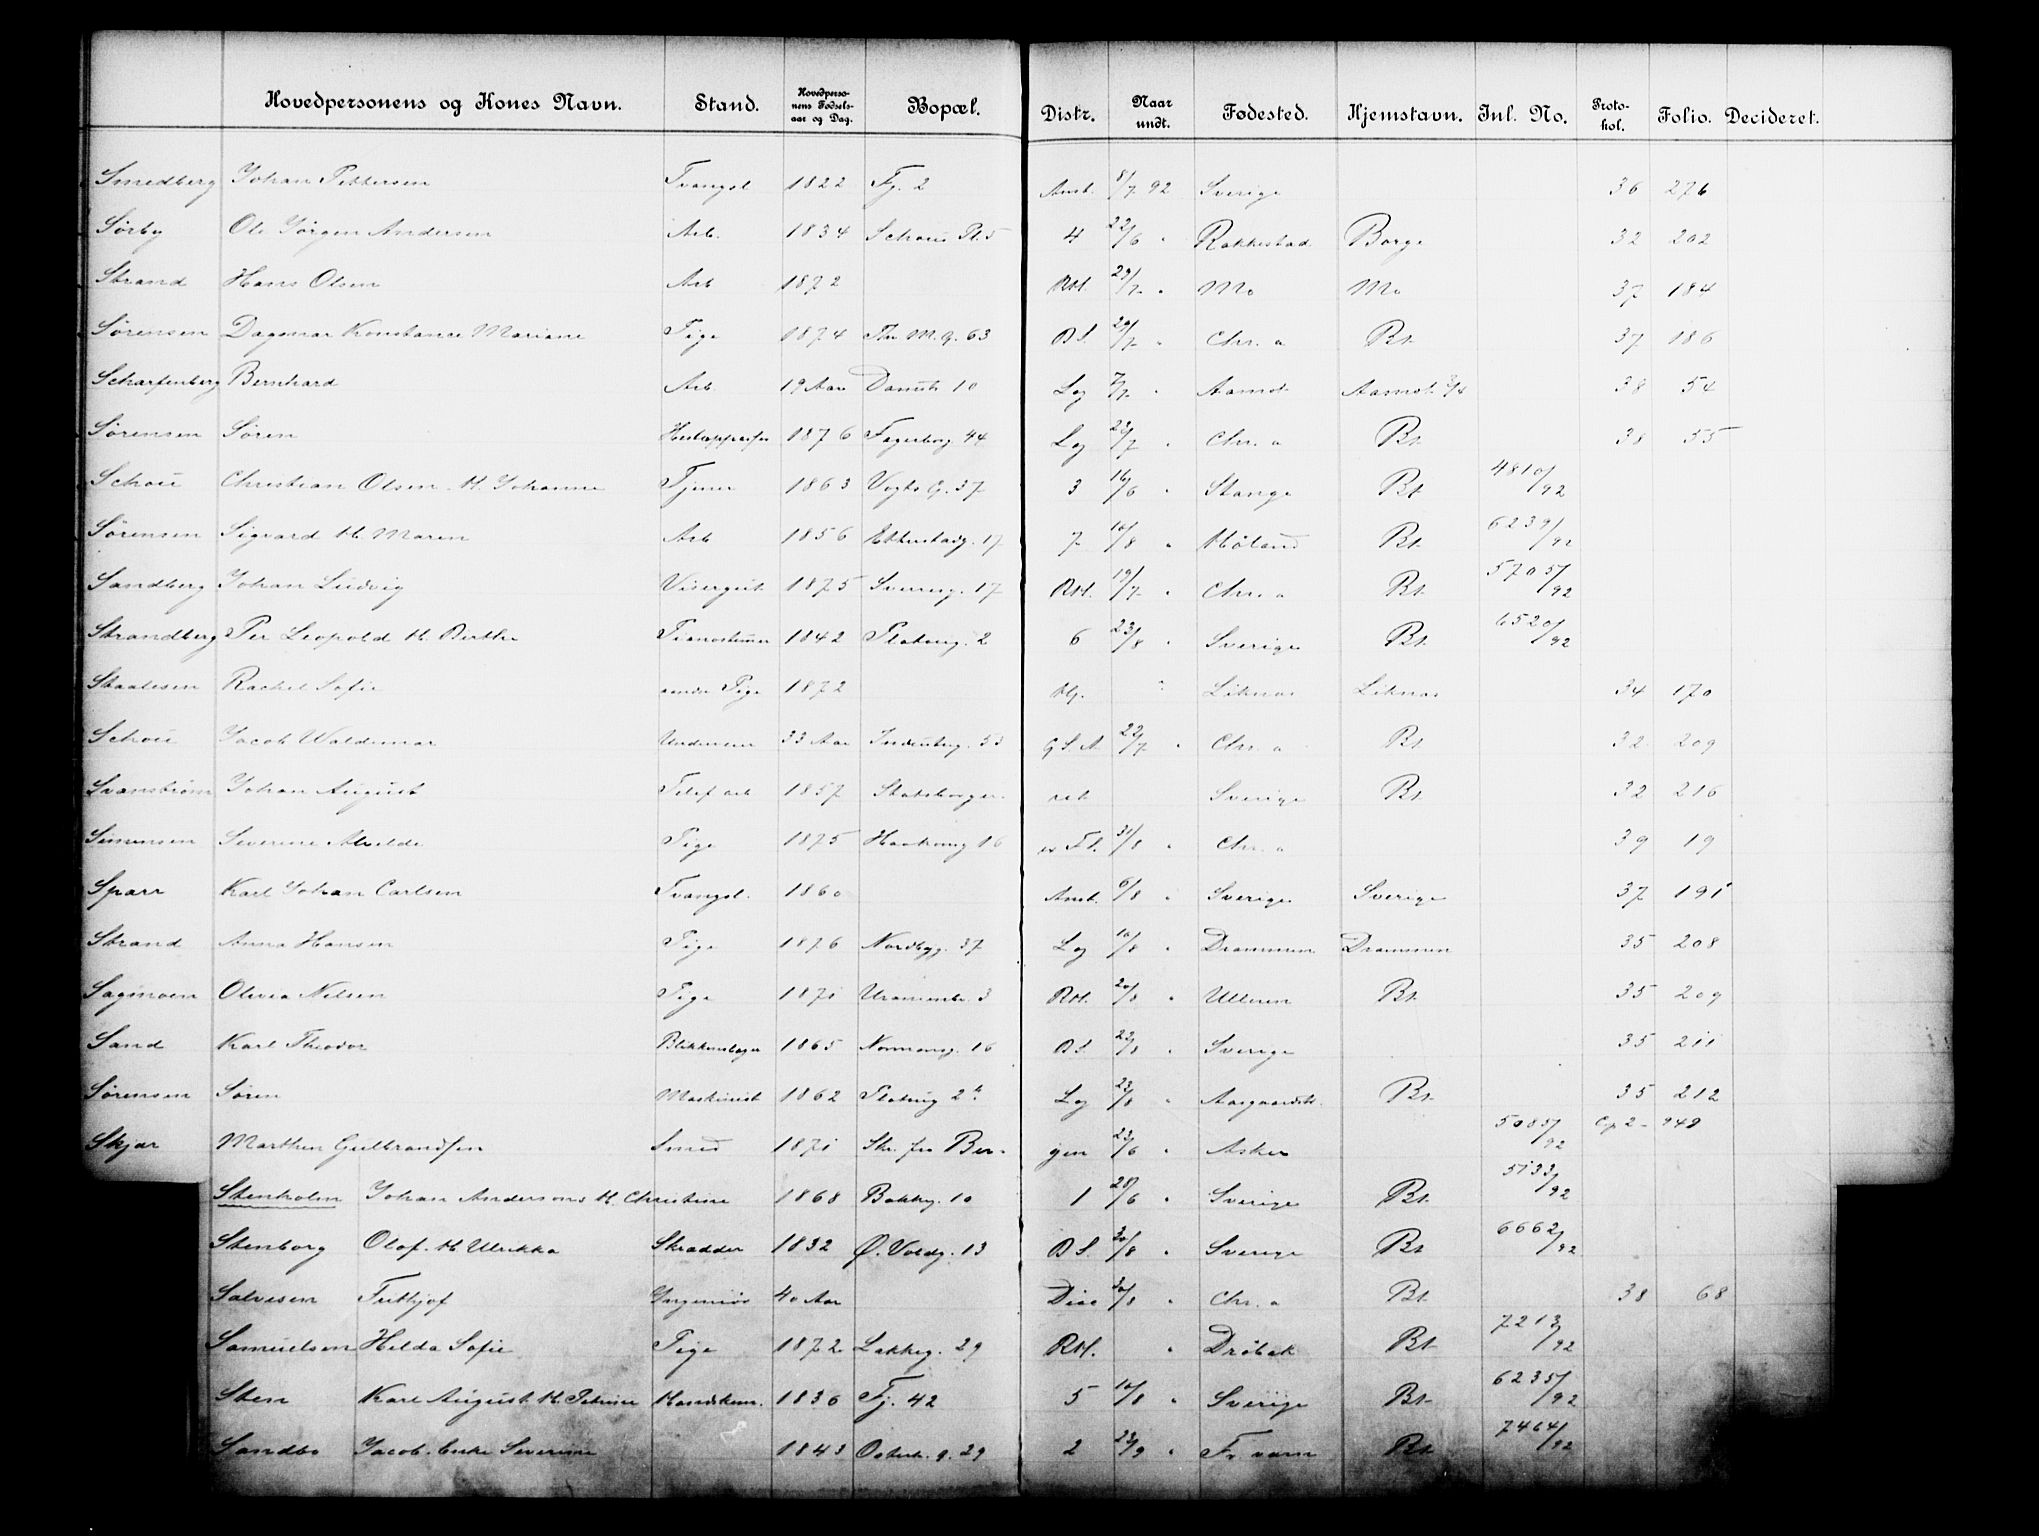 Hovedpersonens og Kones Navn. Stand. Hovedpersonens Fødselsaar og Dag. Bopæl. Distr. Naar undt. Fødested. Hjemstavn. Inl. No. Protokol. Folio. Decideret.
Smedberg Johan Pettersen Tvangsl 1822 Fj. 2 Anst. 8/7 92 Sverige 36 276
Sørby Ole Jørgen Andersen Arb. 1834 Schous Pl. 5 4 22/6 " Rakkestad Borge 32 202
Strand Hans Olsen Arb 1872 RH. 29/7 " Mo Mo 37 184
Sørensen Dagmar Konstance Mariane Pige 1874 Thv M. g. 63 B S. 29/7 " Chr. a Bt. 37 186
Scharfenberg Bernhard Arb. 19 Aar Danvik 10 Lg 7/7 " Aamot Aamot 3/4 38 54
Sørensen Søren 1876 Fagerborg. 44 Lg 22/7 " Chr. a Bt 38 55
Schou Christian Olsen. H. Johanne Tjener 1863 Vogts G. 37 3 16/6 " Stange Bt 4810/92
Sørensen Sigvard H. Maren Arb 1856 Ekkertsdg. 17 7 10/8 " Høland Bt. 6239/92
Sandberg Johan Ludvig Visergut 1875 Sverresg. 17 RH. 19/7 " Chr. a Bt. 5705/92
Strandberg Per Leopold H. Berthe Pianostemer 1842 Platoug. 2 6 23/8 " Sverige Bt. 6520/92
Staalesen Rachel Sofie Pige 1872 Hj. " Liknes Liknes 34 170
Schou Jacob Waldemar 33 Aar Inkognitog. 53 G S. A 22/7 " Chr. a Bt 32 209
Svanstrøm Johan August Telef arb 1857 Statsborger. Sverige Bt 32 216
Simensen Severine Alvilde Pige 1875 Haakonsg 16 Fl. 31/8 " Chr. a 39 19
Sparr Karl Johan Carlsen Tvangsl. 1860 Anst. 6/8 " Sverige Sverige 37 191
Strand Anna Hansen Pige 1876 Nordbyg. 37 Lg 10/8 " Drammen Drammen 35 208
Sagmoen Olivia Nilsen Pige 1871 Uranienbr. 3 RH. 20/8 " Ulleren Bt. 35 209
Sand Karl Theodor Blikkenslager 1865 Normansg. 16 B S. 22/8 " Sverige 35 211
Sørensen Søren Maskinist 1862 Platoug 2a Lg 23/8 " Aasgaardstr. Bt 35 212
Skjær Marthen Gulbrandsen Smed 1871 Skr. fra Bergen 23/6 " Asker 5085/92 Cp 2 - 949
Stenholm Johan Anderson H. Christine 1868 Bakkeg. 10 1 28/6 " Sverige Bt 5133/92
Stenborg Olof. H. Ulrikka Skrædder 1832 Ø. Voldg. 13 B S. 30/8 " Sverige Bt 6662/92
Salvesen Frithjof Ingeniør 40 Aar Diac 30/8 " Chr. a Bt. 38 68
Samuelsen Hilda Sofie Pige 1872 Lakkeg. 29 RH. " Drøbak Bt 7213/92
Sten Karl August. H. Petrine Handskem. 1836 Fj. 42 5 10/8 " Sverige Bt. 6235/92
Sandbo Jacob. Enke Severine 1843 Osterh. g. 29 2 23/9 " Fr værn Bt 7464/92